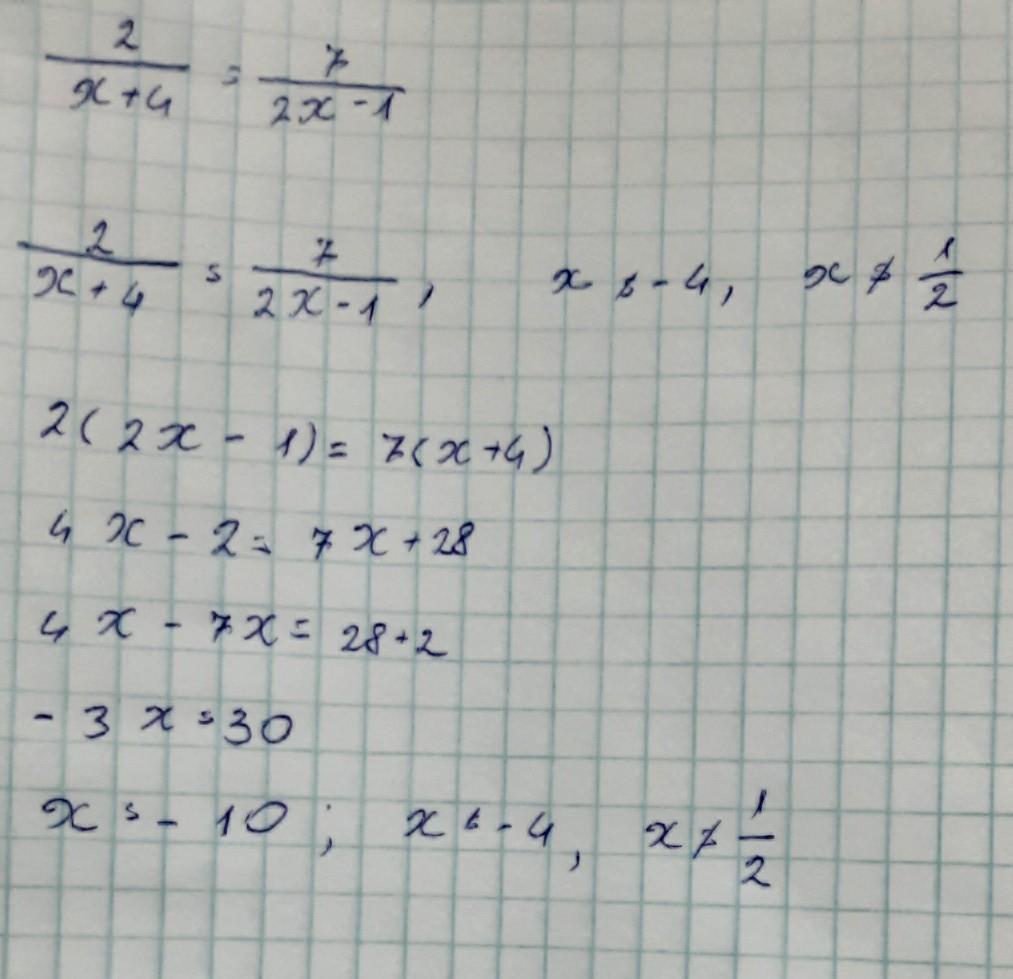 2/(x+4) = 7/(2x-1)
2/(x+4) = 7/(2x-1), x = -4, x ≠ 1/2
2(2x - 1) = 7(x+4)
4x - 2 = 7x + 28
4x - 7x = 28 + 2
-3x = 30
x = -10; x = -4, x ≠ 1/2